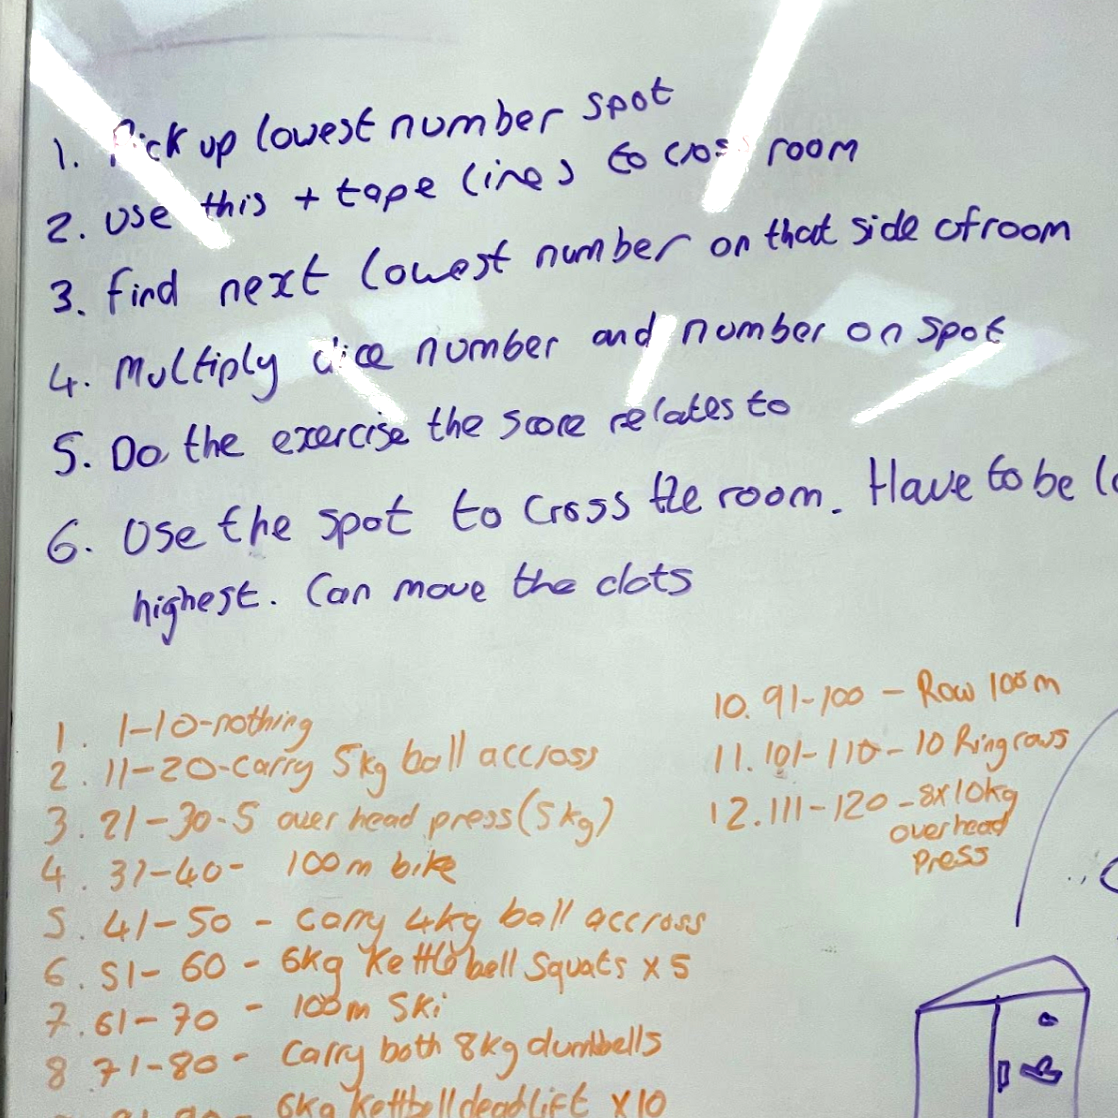 1. Pick up lowest number spot
2. Use this + tape lines to cross room
3. Find next lowest number on that side of room
4. Multiply dice number and number on spot
5. Do the exercise the score relates to
6. Use the spot to cross the room. Have to be
highest. Can move the dots
1. 1-10-nothing
2. 11-20-carry 5kg ball accross
3. 21-30-5 over head press (5kg)
4. 31-40- 100m bike
5. 41-50 - carry 4kg ball accross
6. 51-60 - 6kg Kettlebell Squats x 5
7. 61-70 - 100m Ski
8 71-80 - Carry both 8kg dumbbells
6kg Kettbell deadlift x10
10. 91-100 - Row 100m
11. 101-110-10 Ring rows
12. 111-120 -8x10kg
overhead
press